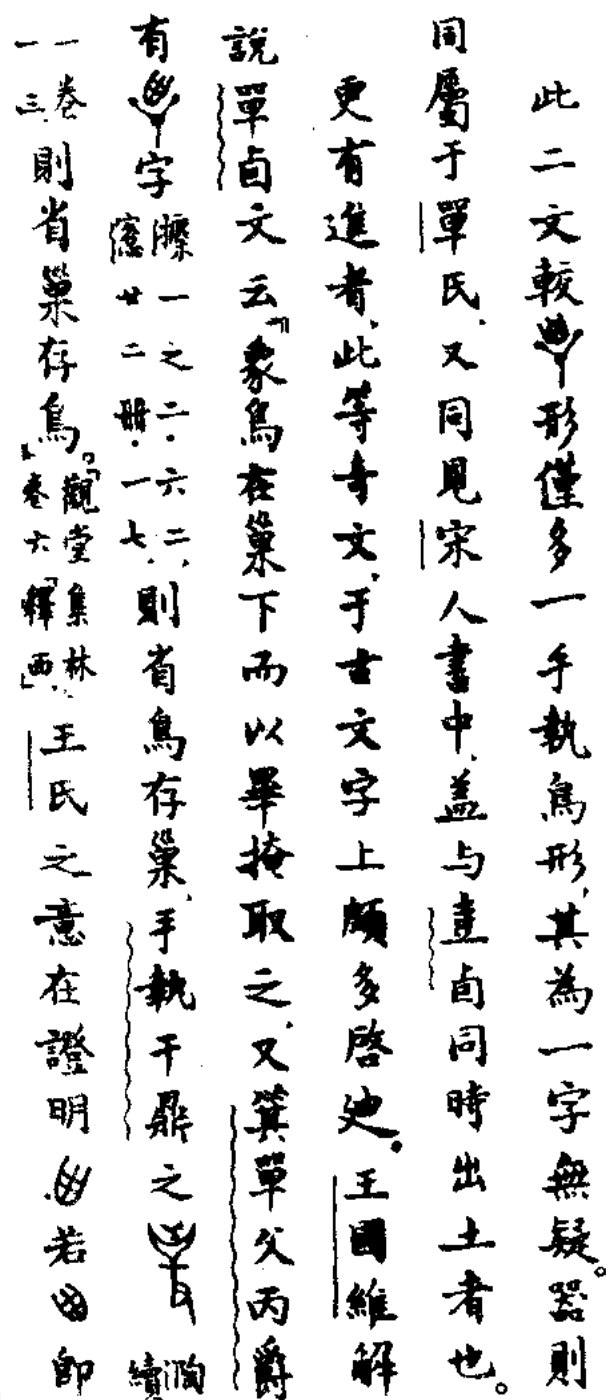 此二文較形僅多一手執鳥形，其為一字無疑。器則
同屬于單氏，又同見宋人書中，蓋与壴卣同時出土者也。
更有進者，此等奇文，于古文字上頗多啓迪。王國維解
說單卣文云「象鳥在巢下而以畢掩取之，又箕單父丙爵
有字𢉩一之二·六二，窓廿二册·一七，則省鳥存巢，手執干鼎之續
一卷一三，則省巢存鳥。」「觀堂集林」卷六「釋西」，王氏之意在證明若即